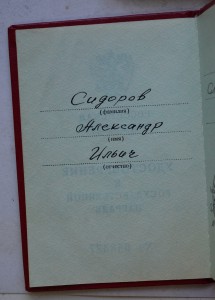 Сидоров
(фамилия)
Александр
(имя)
Ильич
(отчество)